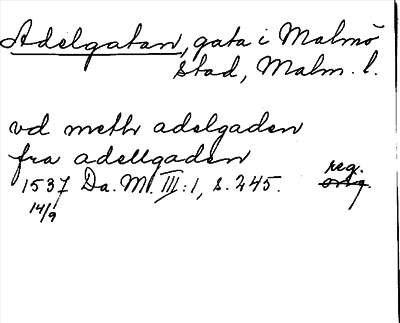 Adelgatan, gata i Malmö
stad, Malm. l.
vd meth adelgaden
fra adellgaden
reg.
1537 Da. M. III:1, s. 245. orig.
14/9